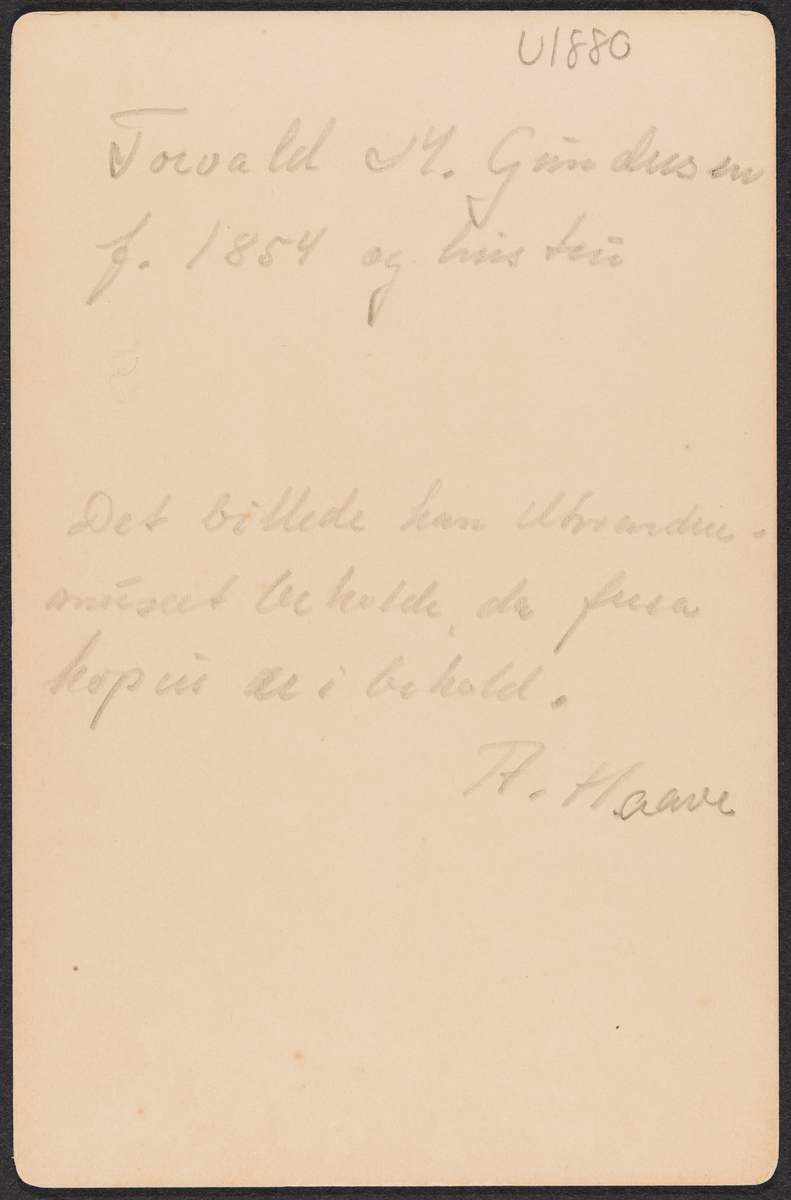 U1880
Torvald M. Gundersen
f. 1854 og hustru
Det billede kan Utvandrer-
museet beholde, da flere
kopier er i behold.
A. Haave